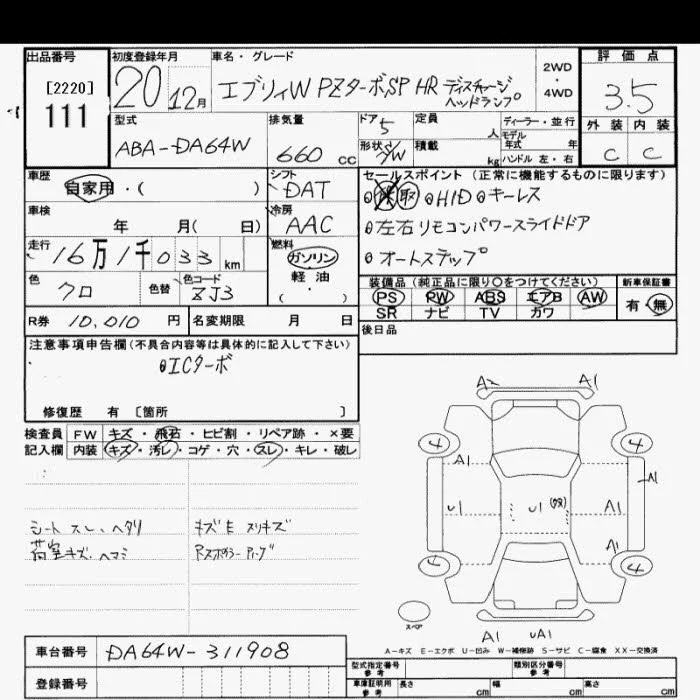 出品番号 初度登録年月 車名・グレード 2WD ・ 4WD 評価点
[2220] 20 12月 エブリィW PZターボSP HR ディスチャージ ヘッドランプ 3.5
111
型式 排気量 ドア 5 定員 人 ディーラー・並行 外装 内装
ABA-DA64W 660 cc 形状 5/W 積載 kg モデル年式 年 ハンドル 左・右 C C
車歴 シフト セールスポイント(正常に機能するものに限ります)
自家用・( ) DAT 取 ⊙HID ⊙キーレス
車検 冷房 ⊙左右リモコンパワースライドドア
年 月( 日) AAC
走行 燃料 ⊙オートステップ
16万1千033 km ガソリン
軽油
( ・ )
色 色替 色コード 装備品(純正品に限り○をつけてください) 新車保証書
クロ ZJ3 PS PW ABS エアB AW 有・無
SR ナビ TV カワ
R券 10,010 円 名変期限 月 日 後日品
注意事項申告欄(不具合内容等は具体的に記入して下さい)
⊙ICターボ
修復歴 有 〔箇所 〕
検査員 FW キズ・飛石・ヒビ割・リペア跡・×要
記入欄 内装 キズ・汚レ・コゲ・穴・スレ・キレ・破レ
シート スレ、ヘタリ キズE スリキズ
荷室キズ、ヘコミ Rスポイラー
A A1
4 4
A1 A1
U1 U1 A1
A1
4 4
スペア
A1 UA1
A-キズ E-エクボ U-凹み W-補修跡 S-サビ C-腐食 XX-交換済
車台番号 DA64W-311908
登録番号
型式指定番号 参考 類別区分番号 参考
車庫証明用 参考 長さ cm 幅 cm 高さ cm